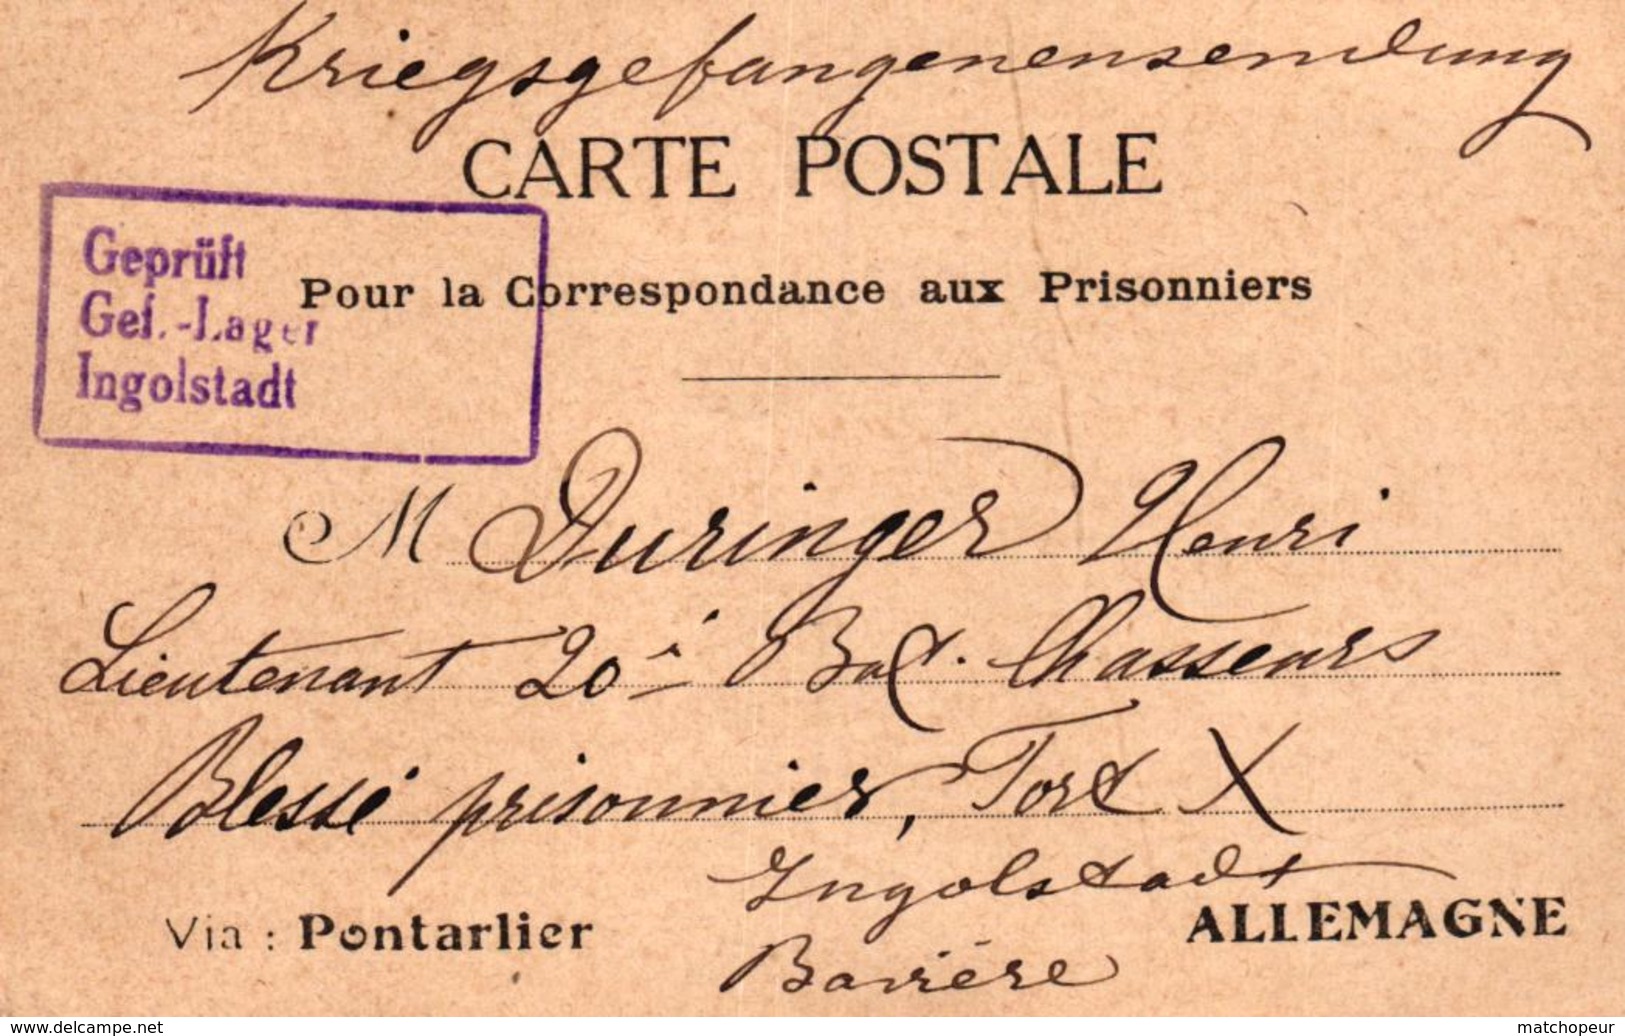 Kriegsgefangenensendung
CARTE POSTALE
Geprüft
Gef.-Lager
Ingolstadt
Pour la Correspondance aux Prisonniers
M Duringer Henri
Lieutenant 20è Bat. Chasseurs
Blessé prisonnier, Fort X
Ingolstadt
Via : Pontarlier
ALLEMAGNE
Bavière
www.delcampe.net
matchopeur